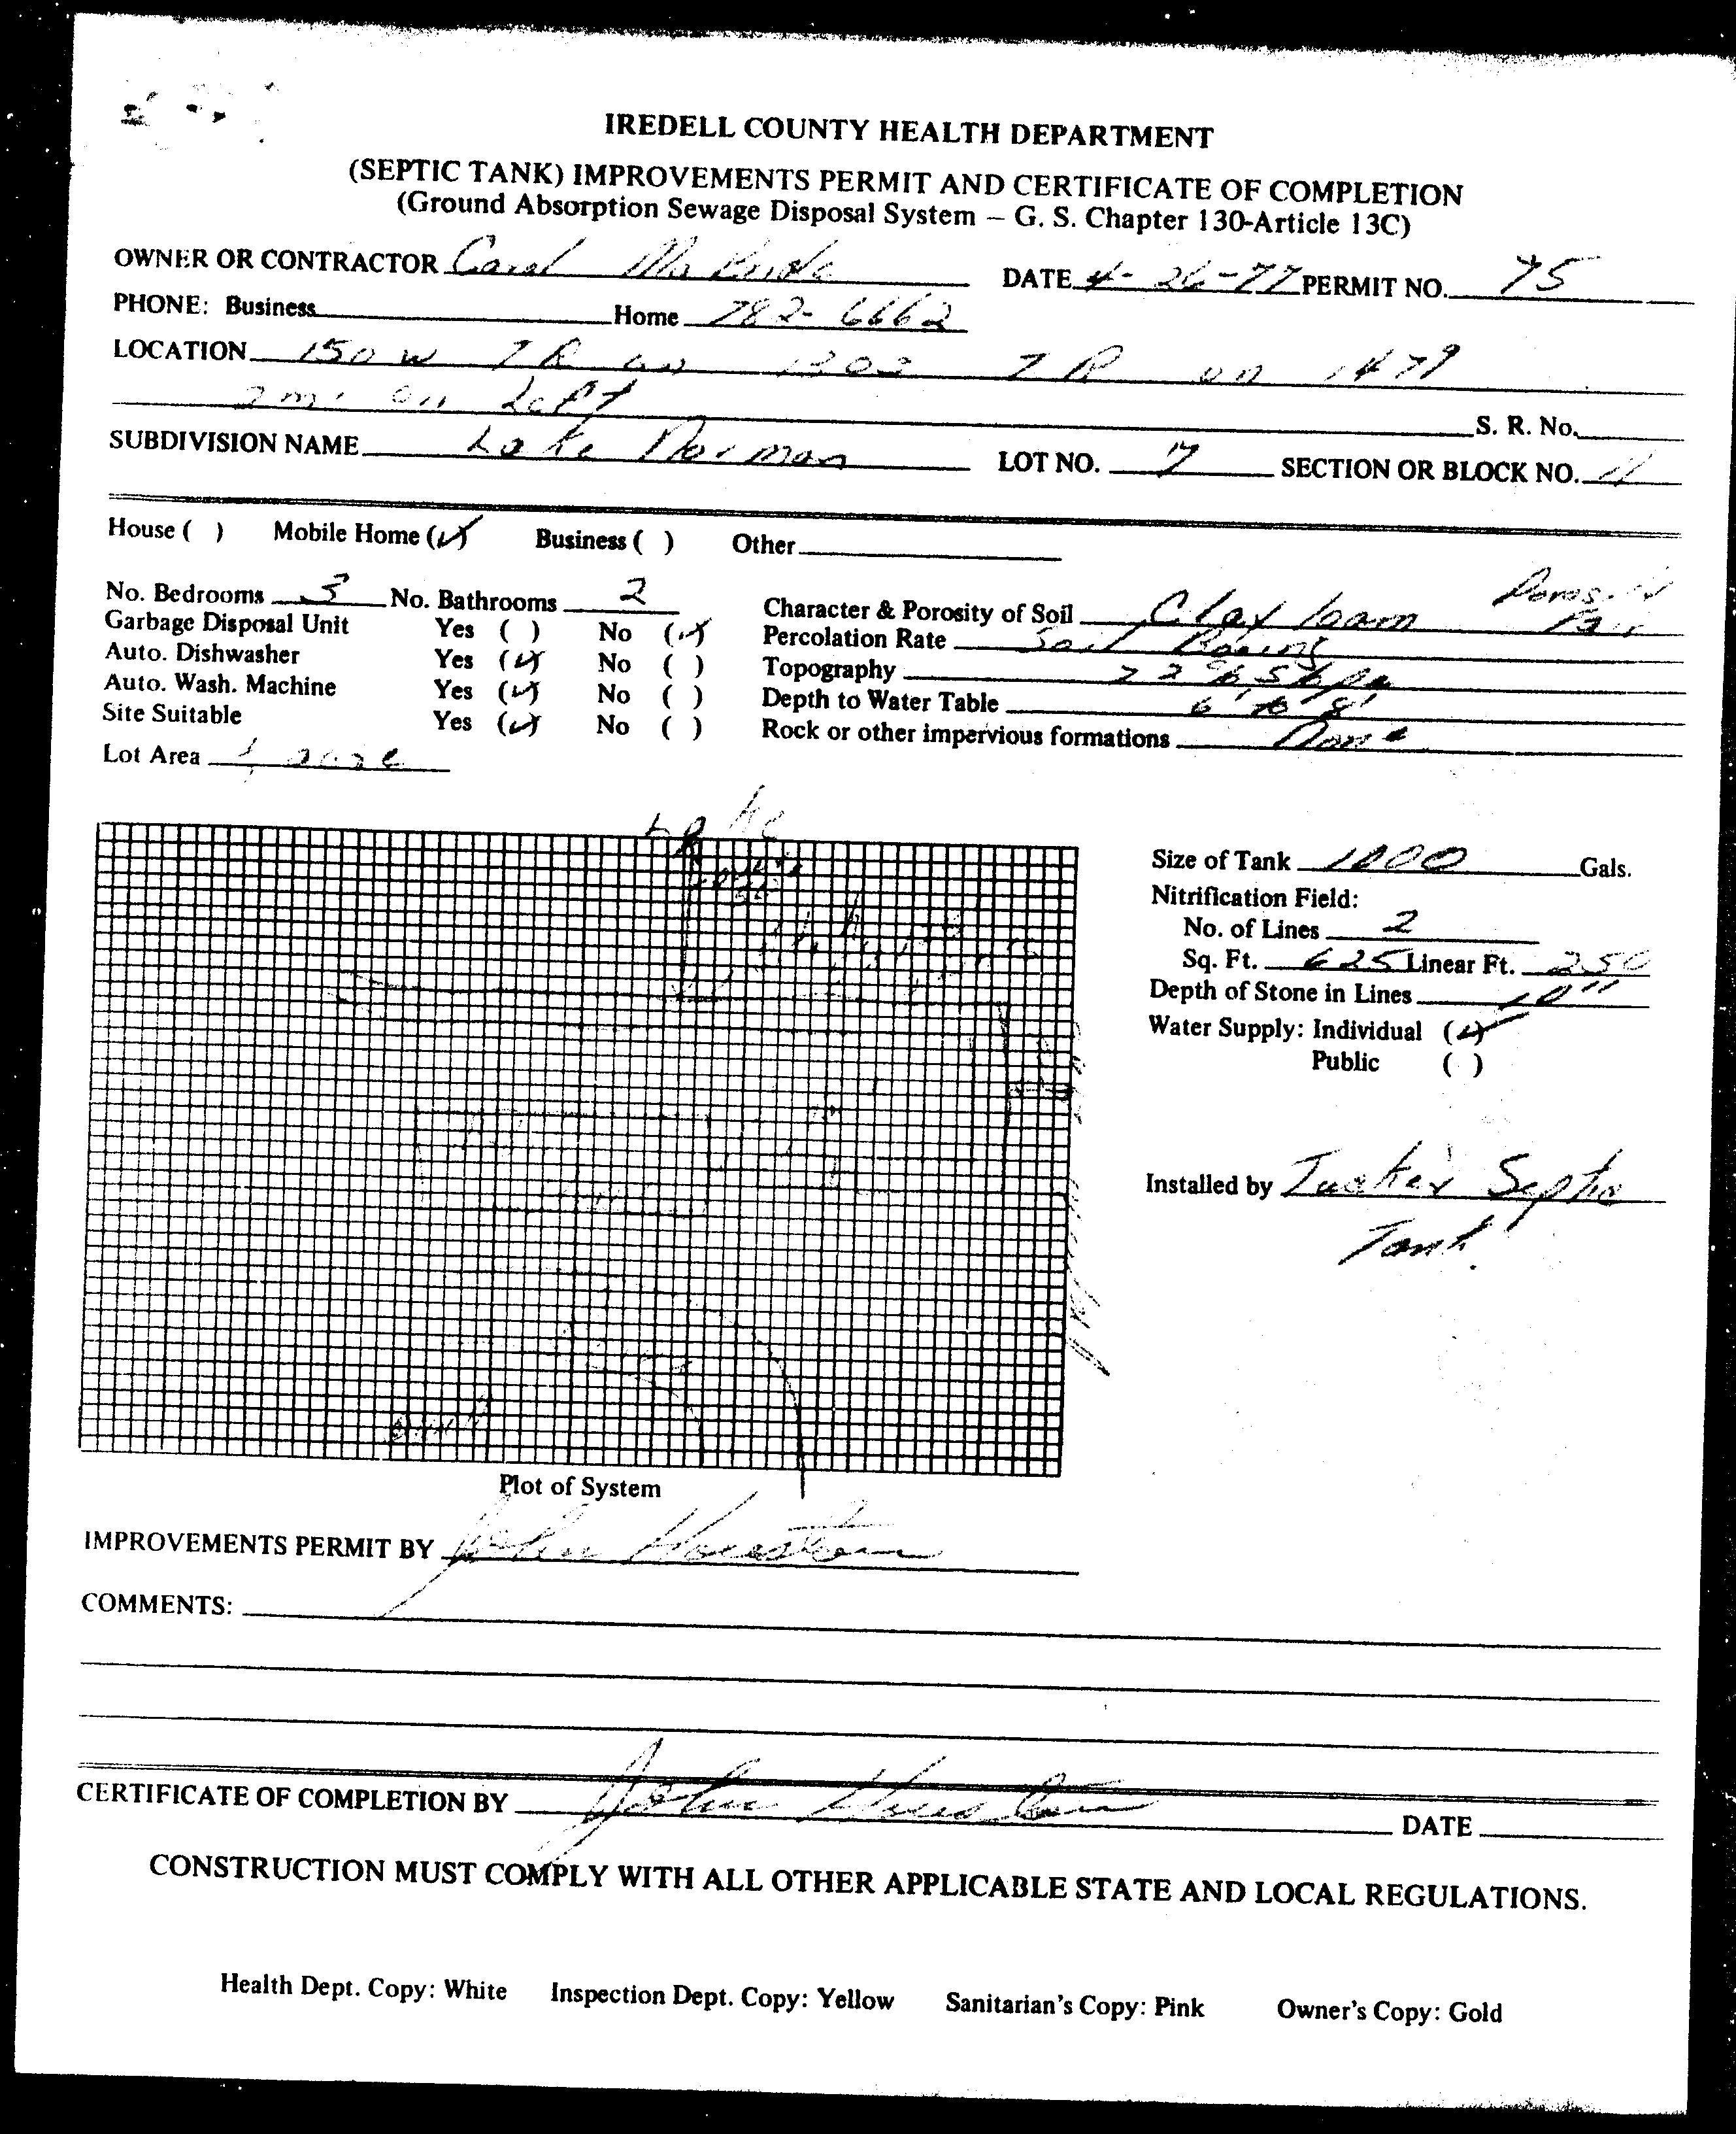 IREDELL COUNTY HEALTH DEPARTMENT
(SEPTIC TANK) IMPROVEMENTS PERMIT AND CERTIFICATE OF COMPLETION
(Ground Absorption Sewage Disposal System — G. S. Chapter 130-Article 13C)
OWNER OR CONTRACTOR Carol McBride DATE 4-26-77 PERMIT NO. 75
PHONE: Business Home 782-6662
LOCATION 150 W TR on 1303 TR on 1479
2 mi on Left S. R. No.
SUBDIVISION NAME Lake Norman LOT NO. 7 SECTION OR BLOCK NO. 11
House ( ) Mobile Home (✓) Business ( ) Other
No. Bedrooms 3 No. Bathrooms 2 Character & Porosity of Soil Clay loam Porosity Fair
Garbage Disposal Unit Yes ( ) No (✓) Percolation Rate Soil Boring
Auto. Dishwasher Yes (✓) No ( ) Topography 22% Slope
Auto. Wash. Machine Yes (✓) No ( ) Depth to Water Table 6' to 8'
Site Suitable Yes (✓) No ( ) Rock or other impervious formations None
Lot Area acre
Lake
Size of Tank 1000 Gals.
Nitrification Field:
No. of Lines 2
Sq. Ft. 625 Linear Ft. 250
Depth of Stone in Lines 10"
Water Supply: Individual (✓)
Public ( )
Installed by Tucker Septic
Tank
Plot of System
IMPROVEMENTS PERMIT BY John Houston
COMMENTS:
CERTIFICATE OF COMPLETION BY John Houston DATE
CONSTRUCTION MUST COMPLY WITH ALL OTHER APPLICABLE STATE AND LOCAL REGULATIONS.
Health Dept. Copy: White Inspection Dept. Copy: Yellow Sanitarian's Copy: Pink Owner's Copy: Gold